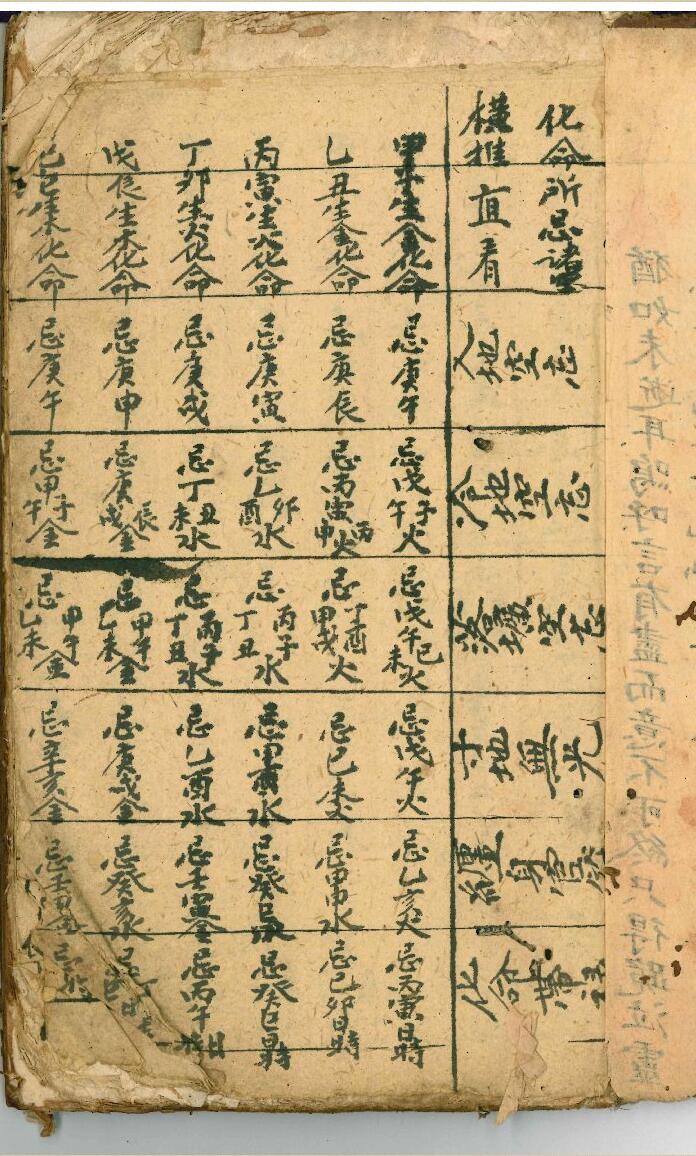 猶如未逝耳嗚呼言有盡而意不可終只得跪泣靈
化命所忌諸空
橫推直看
入地空亡
冷地空亡
落壙空亡
寸地無光
纏身
化命帶
甲子生金化命 忌庚午 忌戊子午火 忌戊午己未火 忌戊午火 忌乙亥火 忌丙寅日時
乙丑生金化命 忌庚辰 忌丙寅丙申火 忌丁酉甲戌火 忌己未火 忌甲申水 忌己卯日時
丙寅生火化命 忌庚寅 忌乙卯酉水 忌丙子丁丑水 忌甲寅水 忌癸巳水 忌癸巳日時
丁卯生火化命 忌庚戌 忌丁丑未水 忌丙子丁丑水 忌乙酉水 忌壬寅金 忌丙午日時
戊辰生木化命 忌庚申 忌庚辰戌金 忌甲午乙未金 忌庚戌金 忌癸亥水 忌丁
己巳生木化命 忌庚午 忌甲子午金 忌甲午乙未金 忌辛亥金 忌壬 金 忌